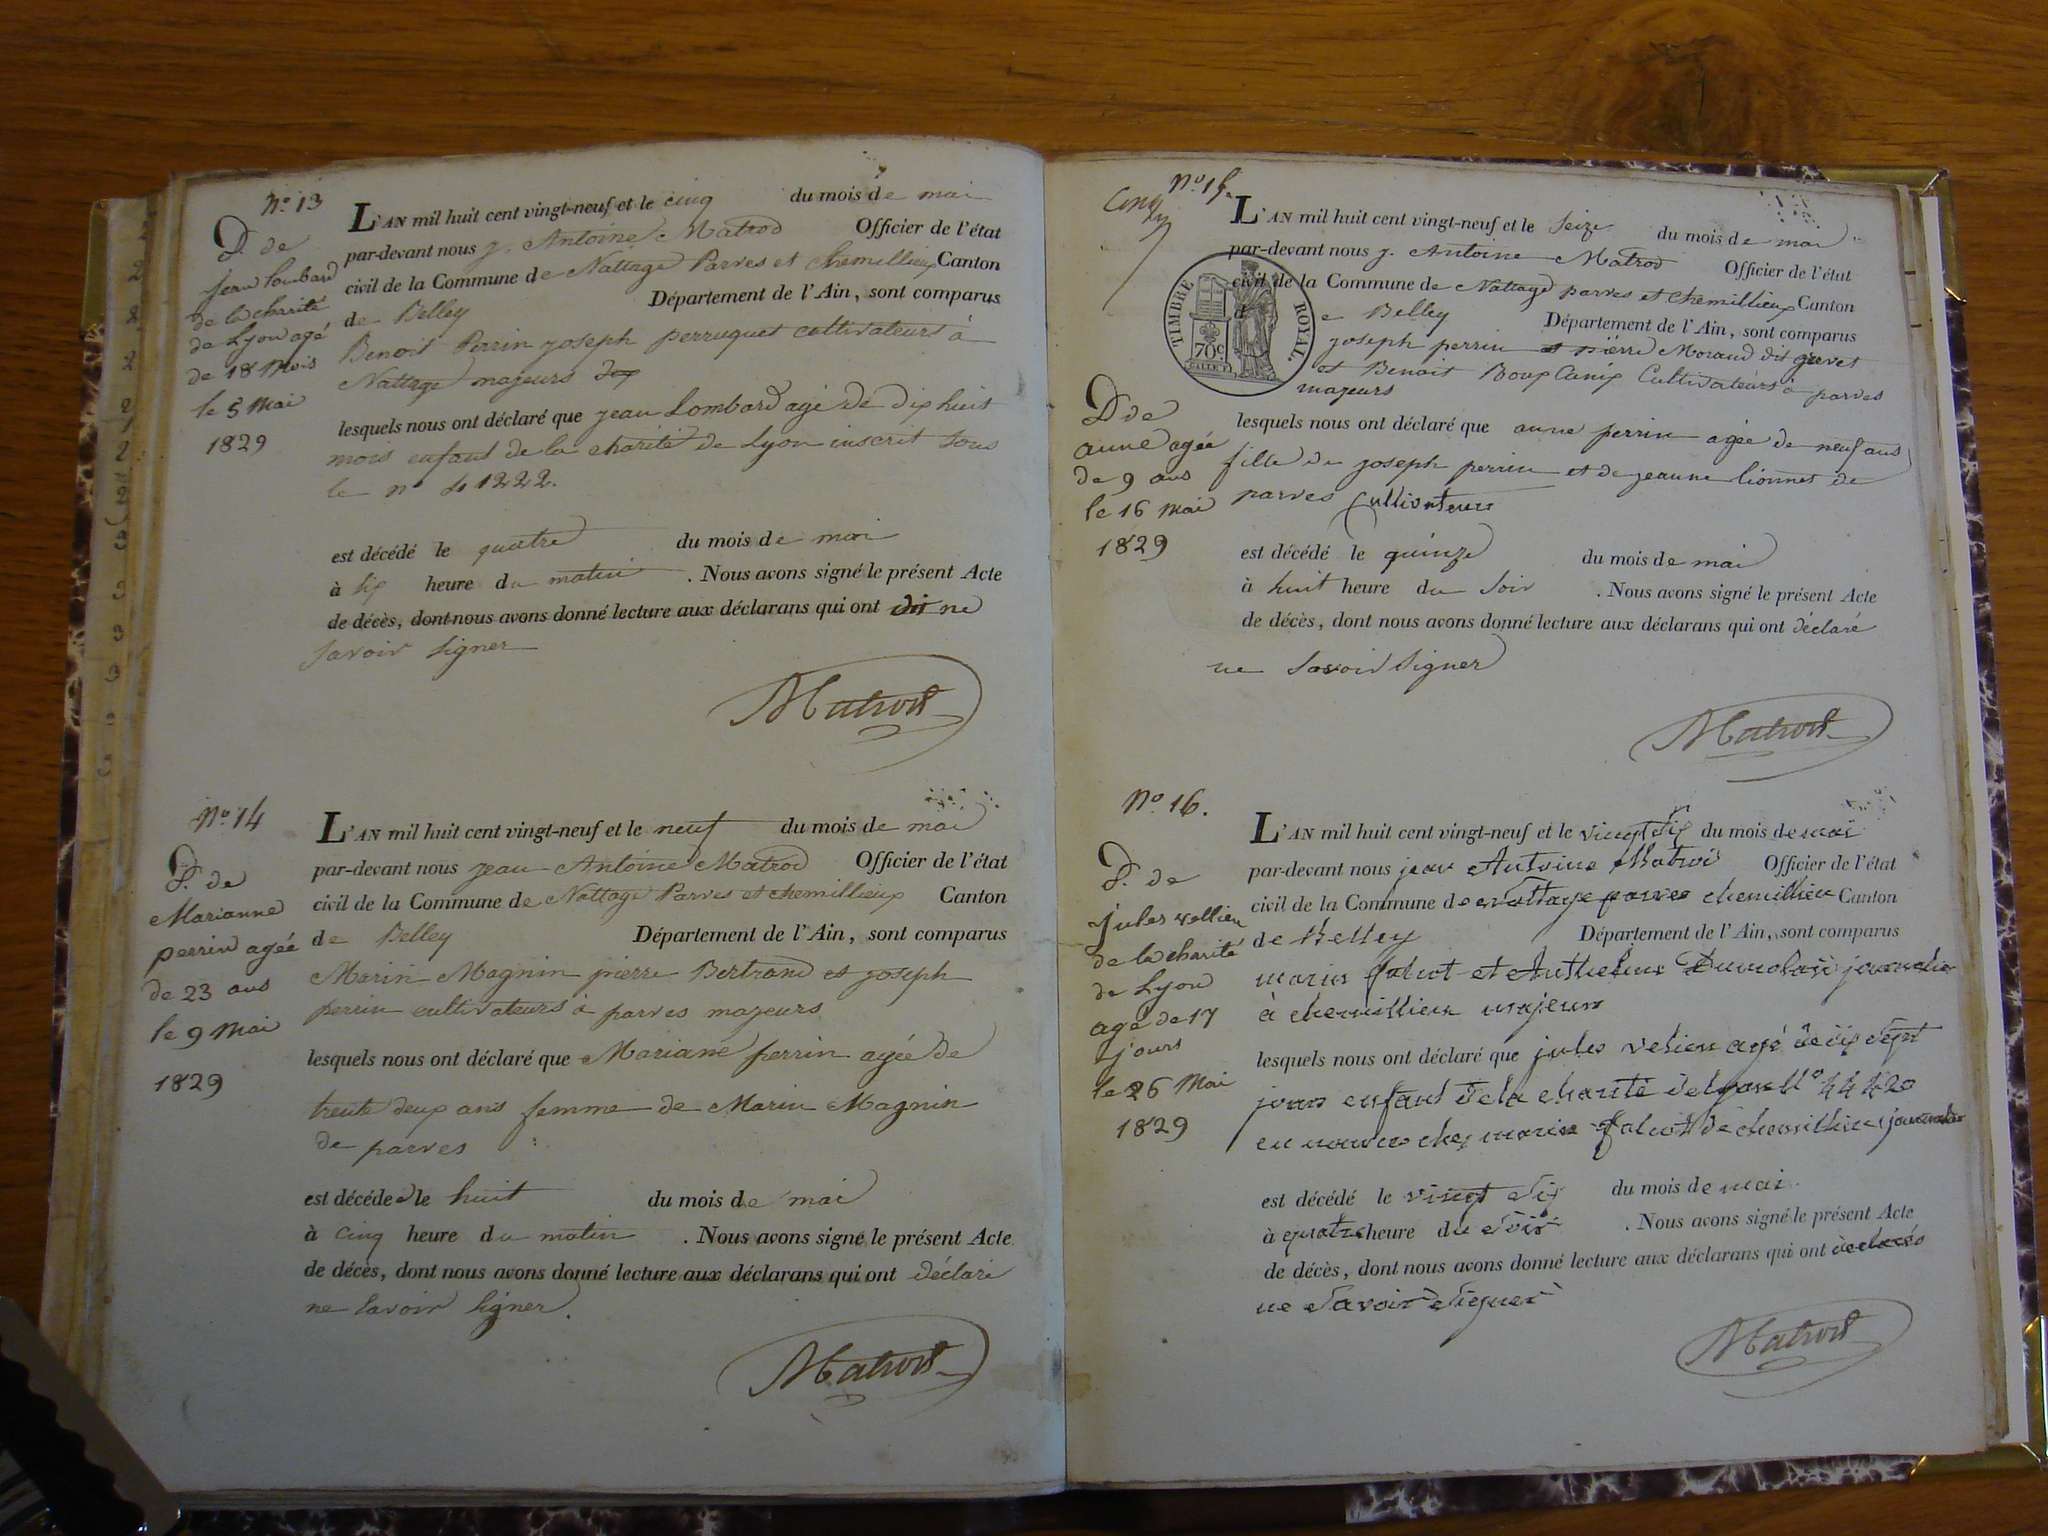 N.° 13
D. de
jean Lombard
de la charité
de Lyon agé
de 18 Mois
le 5 Mai
1829
L'AN mil huit cent vingt-neuf et le cinq du mois de mai
par-devant nous j. Antoine Matrod Officier de l'état
civil de la Commune de Nattage Parves et chemillieux Canton
de Belley Département de l'Ain, sont comparus
Benoit Perrin joseph perruquet cultivateurs à
Nattage majeurs
lesquels nous ont déclaré que jean Lombard agé de dix huit
mois enfant de la charité de Lyon inscrit sous
le n° 41222.
est décédé le quatre du mois de mai
à six heure du matin . Nous avons signé le présent Acte
de décès, dont nous avons donné lecture aux déclarans qui ont dit ne
savoir signer
Matrod
N° 14
D. de
Marianne
perrin agée
de 23 ans
le 9 Mai
1829
L'AN mil huit cent vingt-neuf et le neuf du mois de mai
par-devant nous jean Antoine Matrod Officier de l'état
civil de la Commune de Nattage Parves et chemillieux Canton
de Belley Département de l'Ain, sont comparus
Marin Magnin pierre Bertrand et joseph
perrin cultivateurs à parves majeurs
lesquels nous ont déclaré que Mariane perrin agée de
trente deux ans femme de Marin Magnin
de parves
est décédée le huit du mois de mai
à cinq heure du matin . Nous avons signé le présent Acte
de décès, dont nous avons donné lecture aux déclarans qui ont déclaré
ne savoir signer.
Matrod
N° 15.
TIMBRE ROYAL.
70c
D de
anne agée
de 9 ans
le 16 Mai
1829
L'AN mil huit cent vingt-neuf et le seize du mois de mai
par-devant nous j. Antoine Matrod Officier de l'état
civil de la Commune de Nattage parves et chemillieux Canton
de Belley Département de l'Ain, sont comparus
joseph perrin et pierre Moraud dit
et Benoit Cultivateurs à parves
majeurs
lesquels nous ont déclaré que anne perrin agée de neuf ans
fille de joseph perrin et de jeanne lionnet de
parves Cultivateurs
est décédé le quinze du mois de mai
à huit heure du soir . Nous avons signé le présent Acte
de décès, dont nous avons donné lecture aux déclarans qui ont déclaré
ne savoir signer
Matrod
N° 16.
D. de
jules vellieu
de la charité
de Lyon
agé de 17
jours
le 26 Mai
1829
L'AN mil huit cent vingt-neuf et le vingt six du mois de mai
par-devant nous jean Antoine Matrod Officier de l'état
civil de la Commune de Nattage parves chemillieu Canton
de Belley Département de l'Ain, sont comparus
marin et Anthelme journalier
à chemillieu majeurs
lesquels nous ont déclaré que jules velieu agé de dix sept
jours enfant de la charité de lyon N° 44420
en nourice chez marin de chemillieu journalier
est décédé le vingt six du mois de mai.
à quatre heure du soir . Nous avons signé le présent Acte
de décès, dont nous avons donné lecture aux déclarans qui ont déclarés
ne savoir signer
Matrod